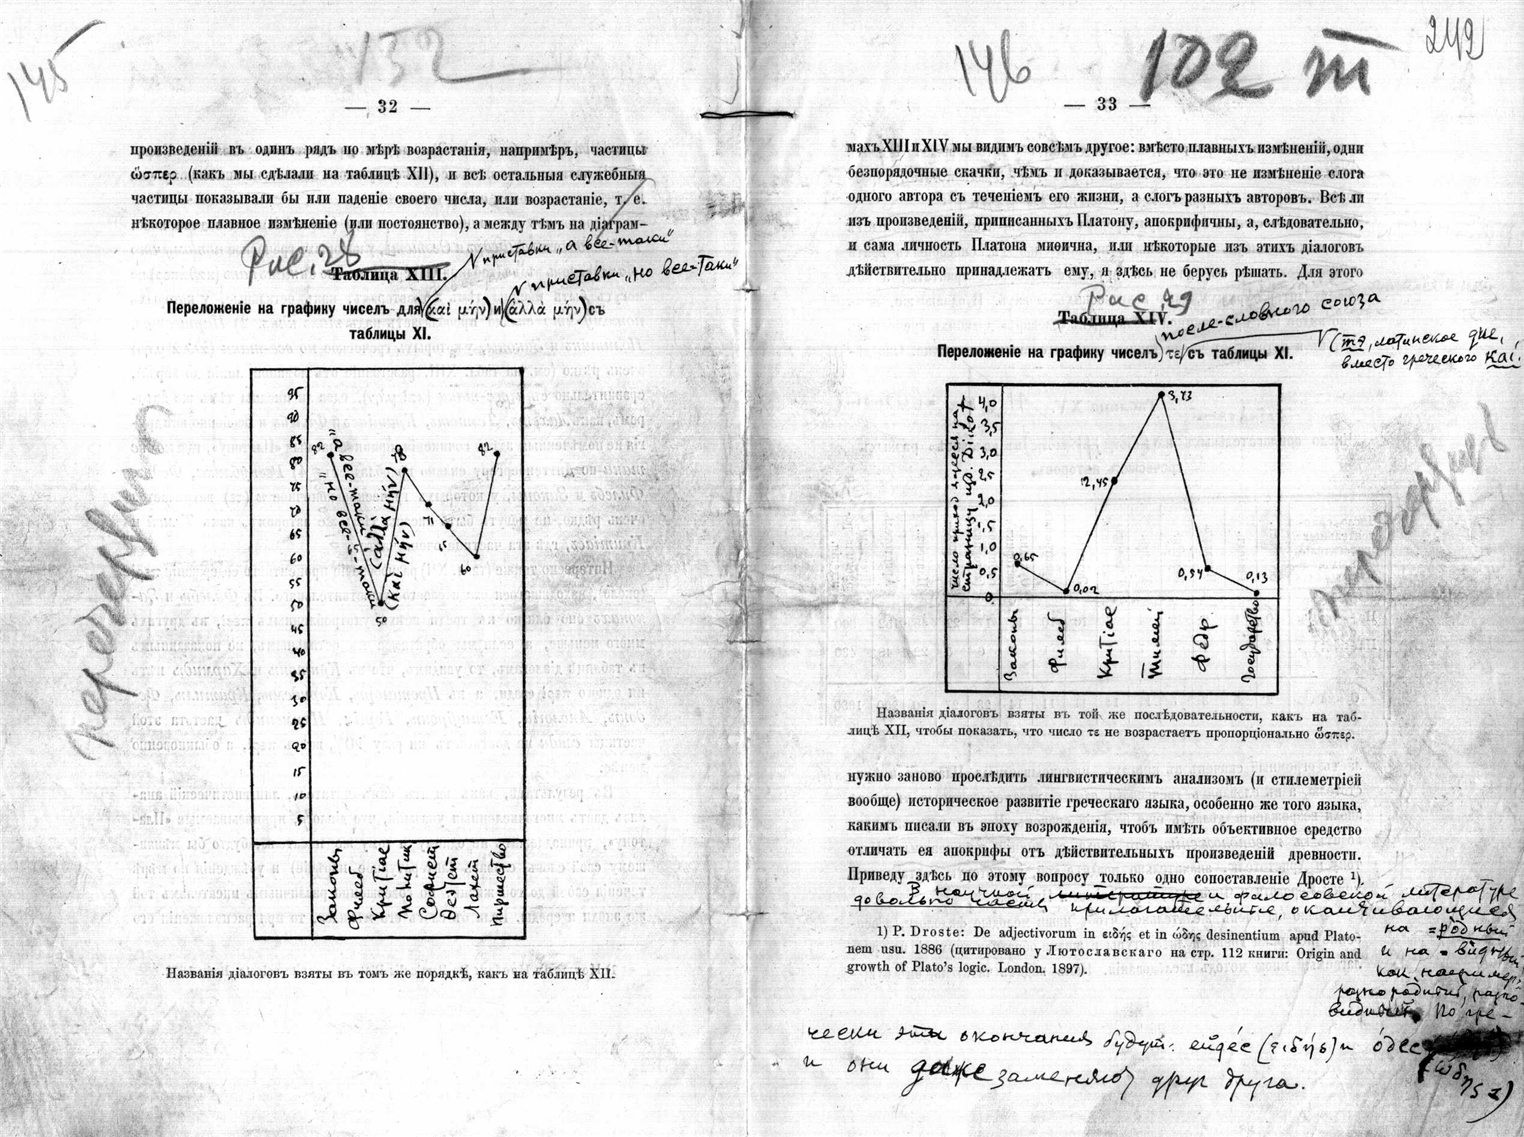 145
132
— 32 —
произведеній въ одинъ рядъ по мѣрѣ возрастанія, напримѣръ, частицы
ὥσπερ (какъ мы сдѣлали на таблицѣ XII), и всѣ остальныя служебныя
частицы показывали бы или паденіе своего числа, или возрастаніе, т. е.
нѣкоторое плавное измѣненіе (или постоянство), а между тѣмъ на діаграм-
Рис. 28
приставки „а все-таки“
Таблица XIII.
приставки „но все-таки“
Переложеніе на графику чиселъ для (καὶ μήν) и (ἀλλὰ μήν) съ
таблицы XI.
95
90
85
80
75
70
65
60
55
50
45
40
35
30
25
20
15
10
5
82
„а все-таки
„но все-таки
(ἀλλὰ μήν)
(καὶ μήν)
50
71
60
82
Законы
Филеб
Критіас
Политик
Софист
Теэтет
Лахет
Пиршество
Названія діалоговъ взяты въ томъ же порядкѣ, какъ на таблицѣ XII.
перечерчит
146
102 III
242
— 33 —
махъ XIII и XIV мы видимъ совсѣмъ другое: вмѣсто плавныхъ измѣненій, одни
безпорядочные скачки, чѣмъ и доказывается, что это не измѣненіе слога
одного автора съ теченіемъ его жизни, а слогъ разныхъ авторовъ. Всѣ ли
изъ произведеній, приписанныхъ Платону, апокрифичны, а, слѣдовательно,
и сама личность Платона миѳична, или нѣкоторые изъ этихъ діалоговъ
дѣйствительно принадлежатъ ему, я здѣсь не берусь рѣшать. Для этого
Рис. 29
Таблица XIV.
после-словного союза
(тэ, латинское que,
вместо греческого καί.
Переложеніе на графику чиселъ τε съ таблицы XI.
4,0
3,5
3,0
2,5
2,0
1,5
1,0
0,5
0
0,65
0,02
2,45
3,43
0,54
0,13
Законы
Филеб
Критіас
Тимей
Федр.
Государство
Названія діалоговъ взяты въ той же послѣдовательности, какъ на таб-
лицѣ XII, чтобы показать, что число τε не возрастаетъ пропорціонально ὥσπερ.
нужно заново прослѣдить лингвистическимъ анализомъ (и стилеметріей
вообще) историческое развитіе греческаго языка, особенно же того языка,
какимъ писали въ эпоху возрожденія, чтобъ имѣть объективное средство
отличать ея апокрифы отъ дѣйствительныхъ произведеній древности.
Приведу здѣсь по этому вопросу только одно сопоставленіе Дросте ¹).
В научной литературе и философской литературе
довольно часты прилагательные, оканчивающиеся
на =родный
и на =видный
как, например,
разнородный, разно-
видный. По гре-
1) P. Droste: De adjectivorum in ειδής et in ώδης desinentium apud Plato-
nem usu. 1886 (цитировано у Лютославскаго на стр. 112 книги: Origin and
growth of Plato's logic. London. 1897).
чески эти окончания будут: ейдес (ειδής) и одес
(ώδης)
и они даже заменяют друг друга.